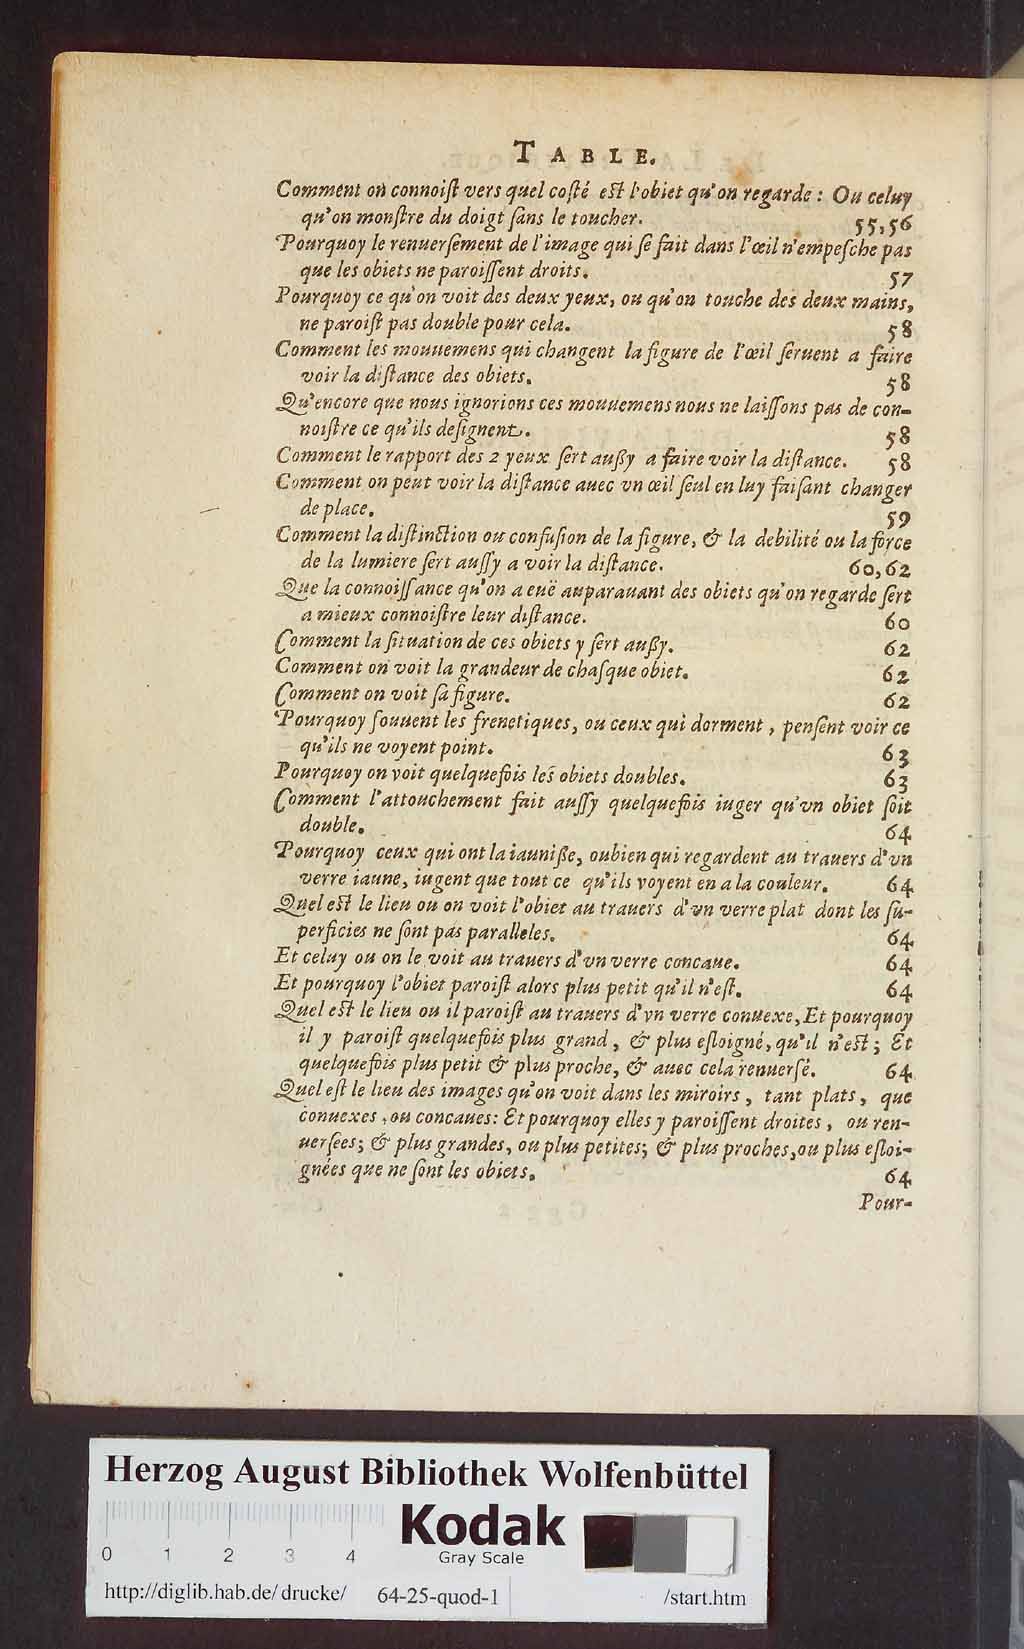 TABLE.
Comment on connoiſt vers quel coſté eſt l'obiet qu'on regarde : Ou celuy
qu'on monſtre du doigt ſans le toucher. 55, 56
Pourquoy le renuerſement de l'image qui ſe fait dans l'œil n'empeſche pas
que les obiets ne paroiſſent droits. 57
Pourquoy ce qu'on voit des deux yeux, ou qu'on touche des deux mains,
ne paroiſt pas double pour cela. 58
Comment les mouuemens qui changent la figure de l'œil ſeruent a faire
voir la diſtance des obiets. 58
Qu'encore que nous ignorions ces mouuemens nous ne laiſſons pas de con-
noiſtre ce qu'ils deſignent. 58
Comment le rapport des 2 yeux ſert auſſy a faire voir la diſtance. 58
Comment on peut voir la diſtance auec vn œil ſeul en luy faiſant changer
de place. 59
Comment la diſtinction ou confuſion de la figure, & la debilité ou la force
de la lumiere ſert auſſy a voir la diſtance. 60, 62
Que la connoiſſance qu'on a euë auparauant des obiets qu'on regarde ſert
a mieux connoiſtre leur diſtance. 60
Comment la ſituation de ces obiets y ſert auſſy. 62
Comment on voit la grandeur de chaſque obiet. 62
Comment on voit ſa figure. 62
Pourquoy ſouuent les frenetiques, ou ceux qui dorment, penſent voir ce
qu'ils ne voyent point. 63
Pourquoy on voit quelquefois les obiets doubles. 63
Comment l'attouchement fait auſſy quelquefois iuger qu'vn obiet ſoit
double. 64
Pourquoy ceux qui ont la iauniſſe, oubien qui regardent au trauers d'vn
verre iaune, iugent que tout ce qu'ils voyent en a la couleur. 64
Quel eſt le lieu ou on voit l'obiet au trauers d'vn verre plat dont les ſu-
perficies ne ſont pas paralleles. 64
Et celuy ou on le voit au trauers d'vn verre concaue. 64
Et pourquoy l'obiet paroiſt alors plus petit qu'il n'eſt. 64
Quel eſt le lieu ou il paroiſt au trauers d'vn verre conuexe, Et pourquoy
il y paroiſt quelquefois plus grand, & plus eſloigné, qu'il n'eſt; Et
quelquefois plus petit & plus proche, & auec cela renuerſé. 64
Quel eſt le lieu des images qu'on voit dans les miroirs, tant plats, que
conuexes, ou concaues: Et pourquoy elles y paroiſſent droites, ou ren-
uerſees; & plus grandes, ou plus petites; & plus proches, ou plus eſloi-
gnées que ne ſont les obiets. 64
Pour-
Herzog August Bibliothek Wolfenbüttel
Kodak
Gray Scale
0 1 2 3 4
http://diglib.hab.de/drucke/ 64-25-quod-1 /start.htm